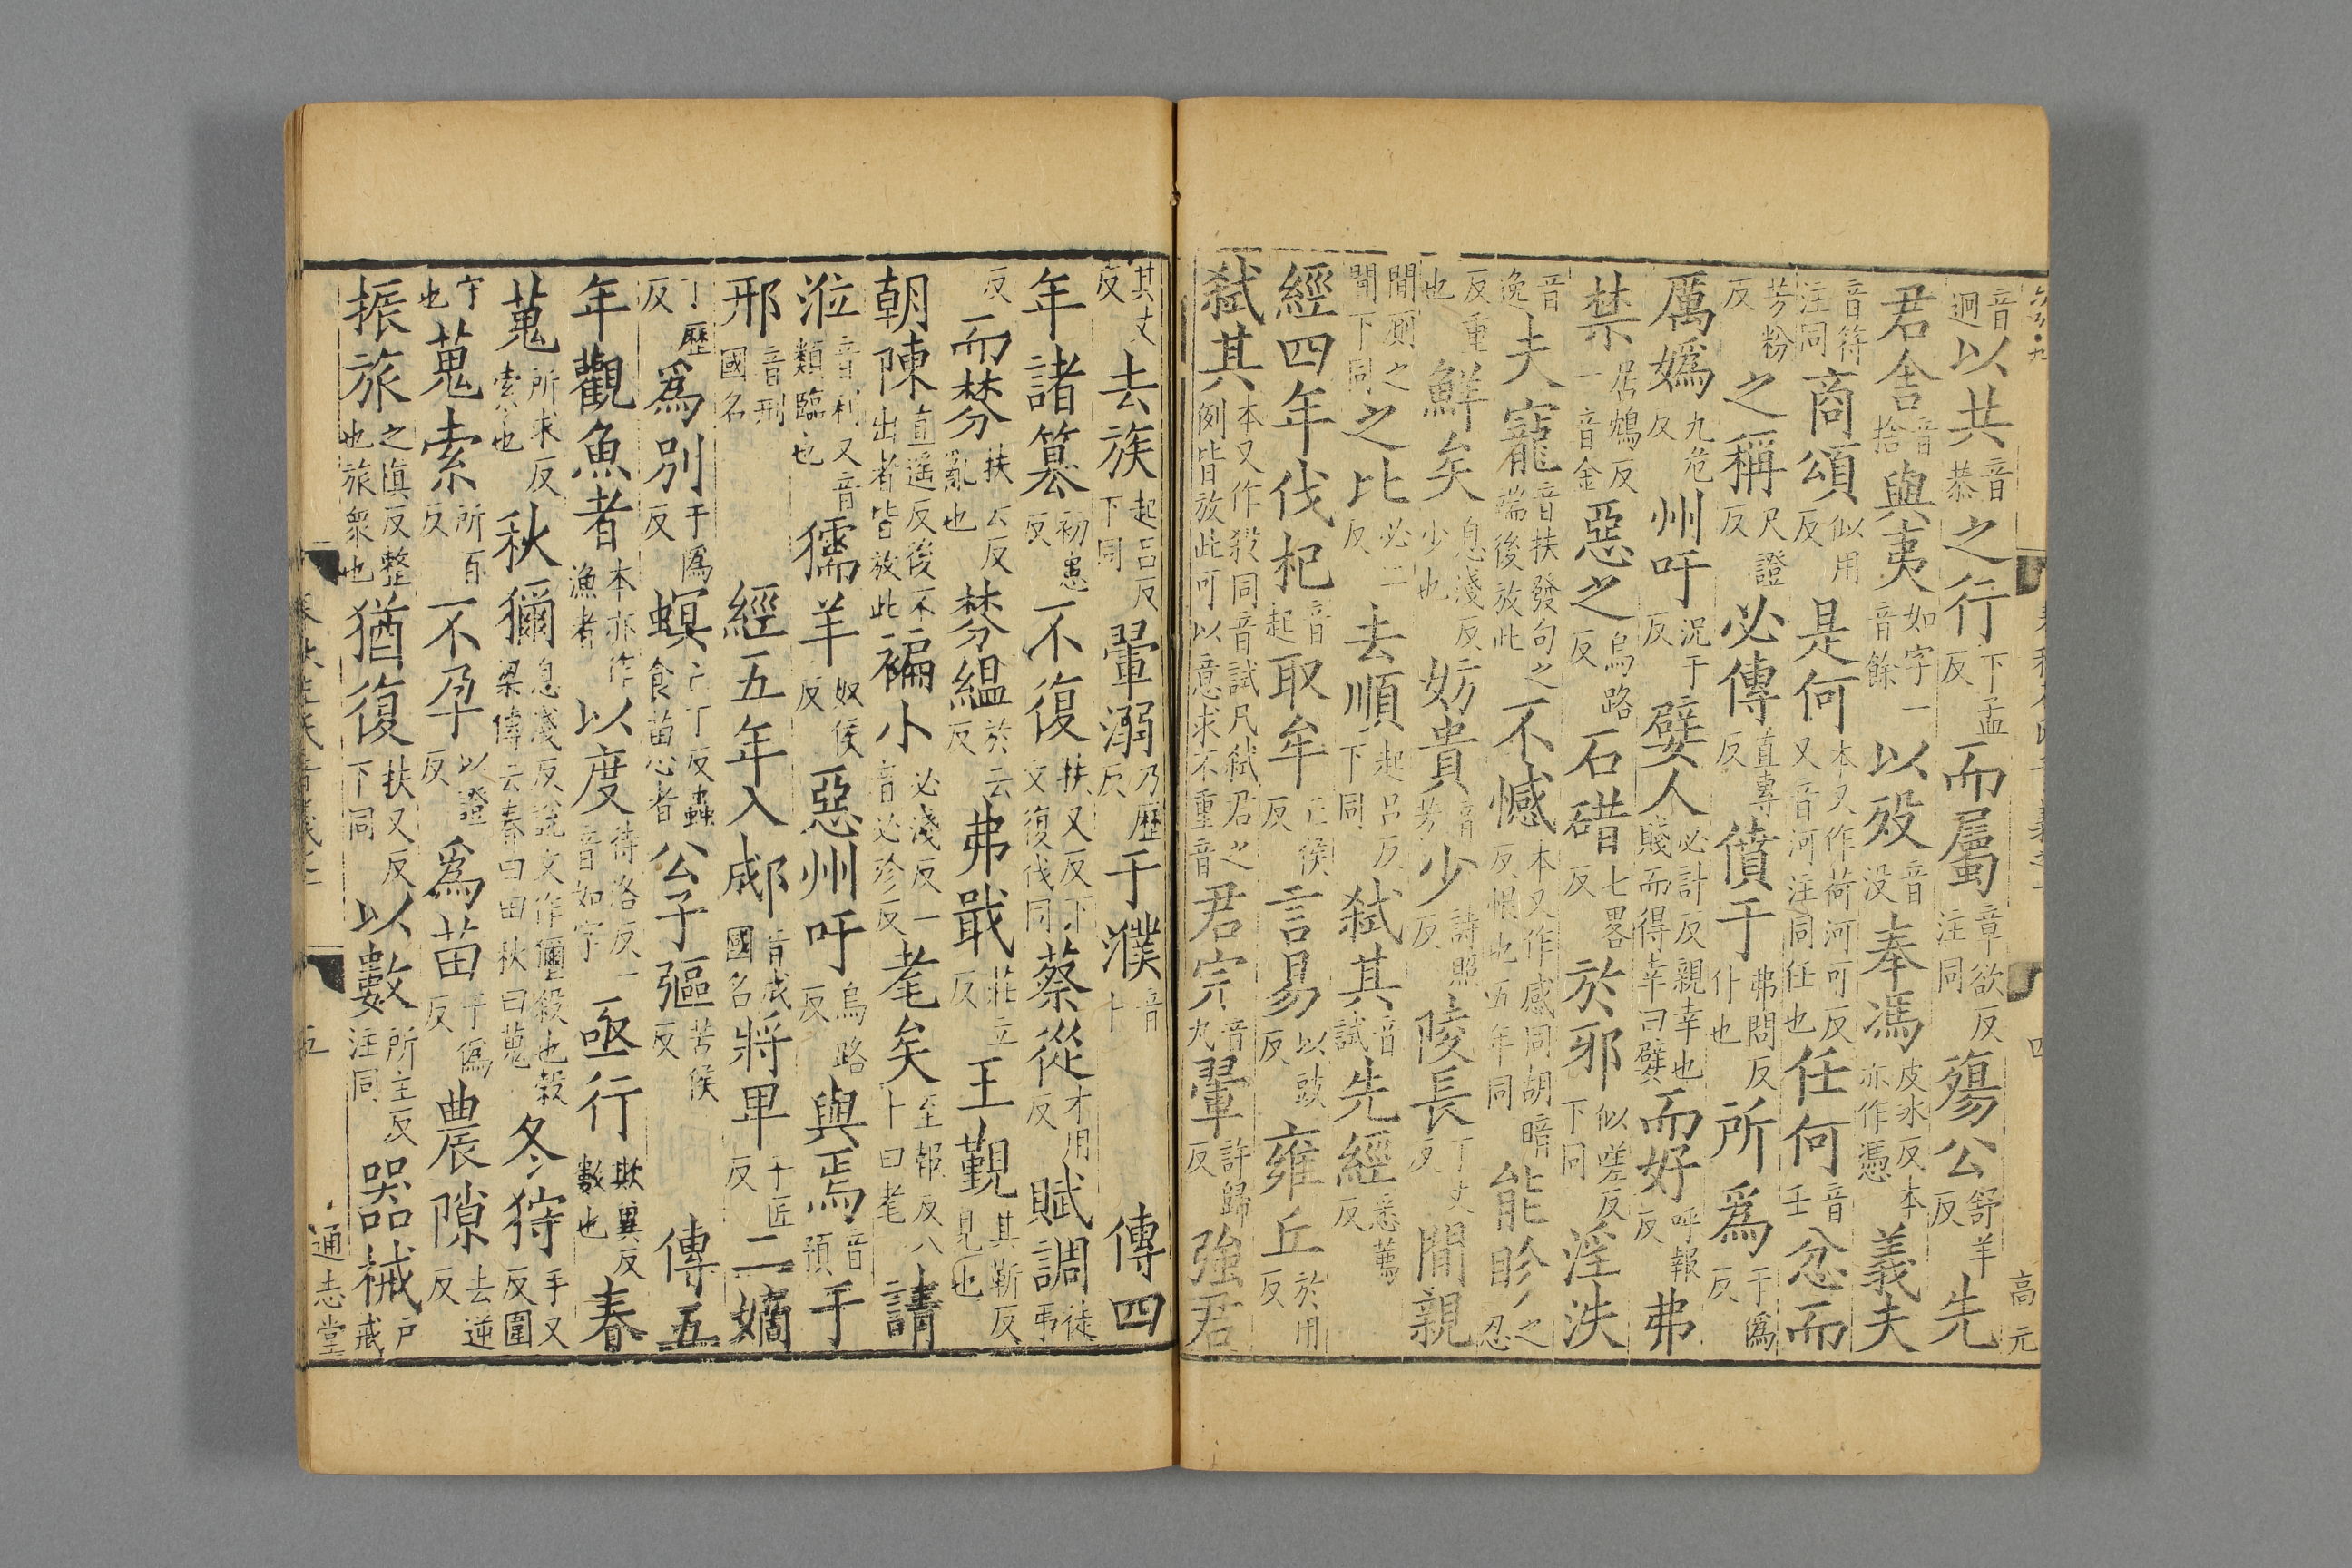 迥音以共恭音之行下孟反而屬章欲反注同殤公舒羊反先
君舍音捨與夷如字一音餘以殁音没奉馮皮冰反本亦作憑義夫
音符注同商頌似用反是何本又作荷河可反又音河注同任也任何音壬忿而
芳粉反之稱尺證反必傳直專反僨于弗問反仆也所爲于僞反
厲嬀九危反州吁况于反嬖人必計反親幸也賤而得幸曰嬖而好呼報反弗
禁居鴆反一音金惡之烏路反石碏七畧反於邪似嗟反下同淫泆
音逸夫寵音扶發句之端後放此不憾本又作感同胡暗反恨也五年同能眕之忍
反重也鮮矣息淺反少也妨貴音芳少詩照反陵長丁丈反間親
間廁之間下同之比必二反去順起呂反下同弑其音試先經悉薦反
經四年伐杞音起取牟亡侯反言易以豉反雍丘於用反
弑其本又作殺同音試凡弑君之例皆放此可以意求不重音君完音丸翬許歸反強君
其丈反去族起呂反下同翬溺乃歷反于濮音卜傳四
年諸簒初患反不復扶又反下文復伐同蔡從才用反賦調徒弔
反而棼扶云反亂也棼緼於云反弗戢莊立反王覲其靳反見也
朝陳直遥反後不出者皆放此褊小必淺反一音必珍反耄矣至報反八十曰耄請
涖音利又音類臨也獳羊奴侯反惡州吁烏路反與焉音預于
邢音刑國名經五年入郕音成國名將卑子匠反二嫡
丁歷反爲别于僞反螟亡丁反蟲食苗心者公子彄苦侯反傳五
年觀魚者本亦作漁者以度待洛反一音如字亟行欺異反數也春
蒐所求反索也秋獮息淺反說文作𤣗殺也穀梁傳云春曰田秋曰蒐冬狩手又反圍
守也蒐索所百反不孕以證反爲苗于僞反農隙去逆反
振旅之慎反整也旅衆也猶復扶又反下同以數所主反注同器械戶戒
高元
四
五
通志堂